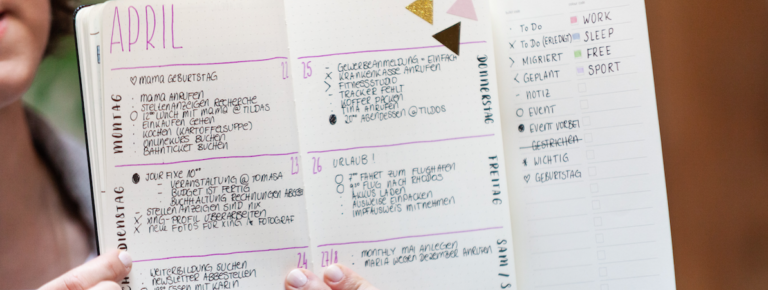 APRIL
22
MONTAG
♡ MAMA GEBURTSTAG
· MAMA ANRUFEN
· STELLENANZEIGEN RECHERCHE
○ 12⁰⁰ LUNCH MIT MAMA @ TILDAS
· EINKAUFEN GEHEN
· KOCHEN (KARTOFFELSUPPE)
· ONLINEKURS BUCHEN
· BAHNTICKET BUCHEN
23
DIENSTAG
● JOUR FIXE 10⁰⁰
– VERANSTALTUNG @ TOMASA
– BUDGET IST FERTIG
– BUCHHALTUNG RECHNUNGEN
– STELLENANZEIGEN SIND NIX
X XING-PROFIL ÜBERARBEITEN
X NEUE FOTOS FÜR XING FOTOGRAF
24
· WEITERBILDUNG SUCHEN
· NEWSLETTER ABBESTELLEN
ESSEN MIT KARIN
25
DONNERSTAG
– GEWERBEANMELDUNG = EINFACH
X KRANKENKASSE ANRUFEN
> FITNESSSTUDIO
– TRACKER FEHLT
· KOFFER PACKEN
· TINA ANRUFEN
● 20⁰⁰ ABENDESSEN @ TILDOS
26
FREITAG
URLAUB!
○ 7⁰⁰ FAHRT ZUM FLUGHAFEN
○ FLUG NACH RHODOS
· AKKUS LADEN
· AUSWEISE EINPACKEN
· IMPFAUSWEIS MITNEHMEN
27/8
SAM / S
· MONTHLY MAI ANLEGEN
· MARIA WEGEN DEZEMBER ANRUFEN
· TO DO
X TO DO (ERLEDIGT)
> MIGRIERT
< GEPLANT
– NOTIZ
○ EVENT
● EVENT VORBEI
GESTRICHEN
WICHTIG
♡ GEBURTSTAG
WORK
SLEEP
FREE
SPORT